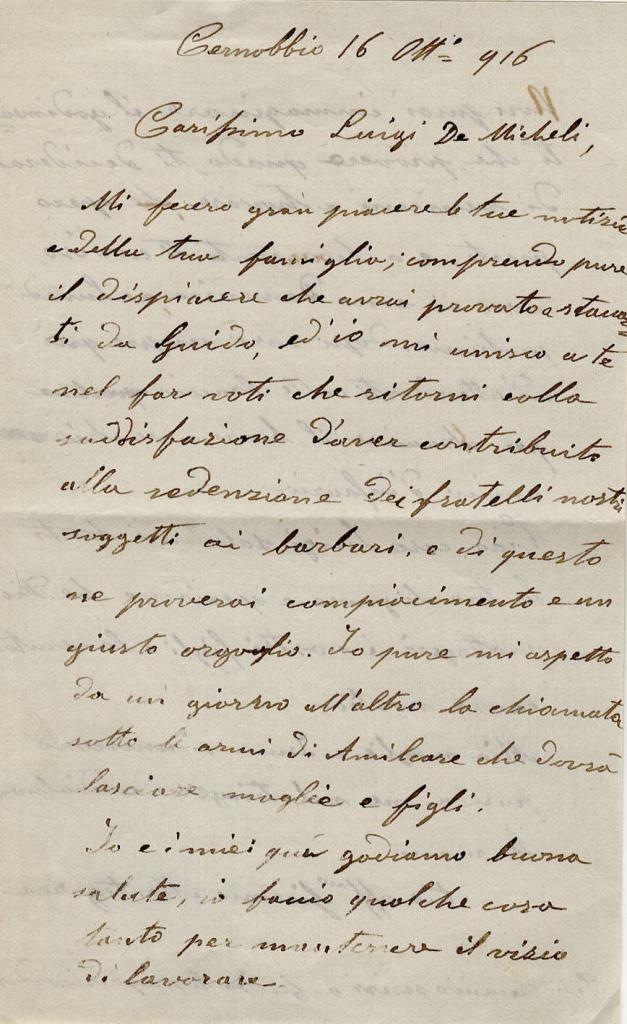 Cernobbio 16 Ott.e 916
Carissimo Luigi De Micheli,
Mi fecero gran piacere le tue notizie
e della tua famiglia; comprendo pure
il dispiacere che avrai provato a staccar=
ti da Guido, ed'io mi unisco a te
nel far voti che ritorni colla
soddisfazione d'aver contribuito
alla redenzione dei fratelli nostri
soggetti ai barbari. e di questo
ne proverai compiacimento e un
giusto orgoglio. Io pure mi aspetto
da un giorno all'altro la chiamata
sotto le armi di Amilcare che dovrà
lasciare moglie e figli.
Io e i miei quà godiamo buona
salute, io faccio qualche cosa
tanto per mantenere il vizio
di lavorare.